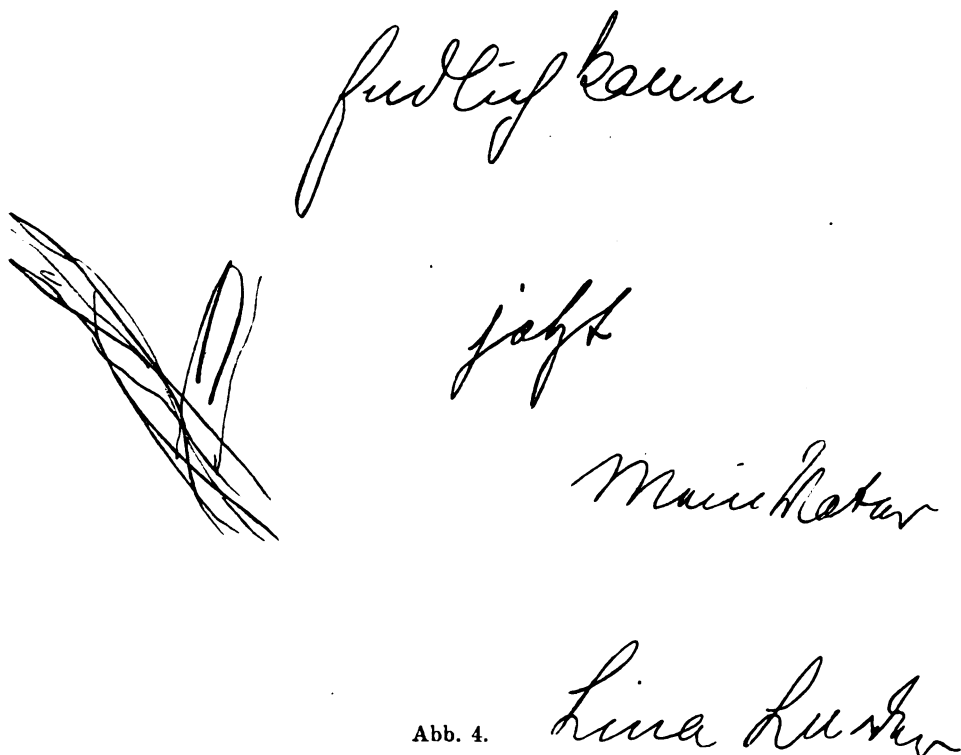 Endlich kann
jetzt
Mein Vater
Abb. 4. Lina